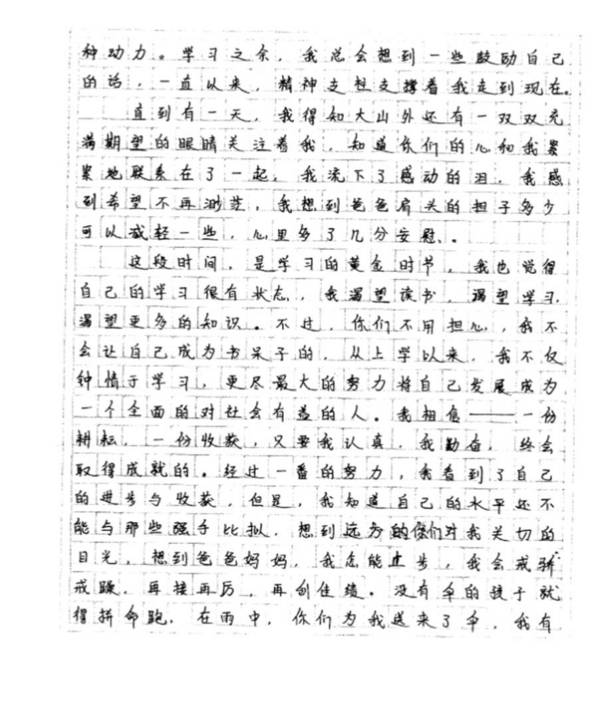 种动力。学习之余，我总会想到一些鼓励自己
的话，一直以来，精神支柱支撑着我走到现在。
直到有一天，我得知大山外还有一双双充
满期望的眼睛关注着我，知道你们的心和我累
累地联系在了一起，我流下了感动的泪，我感
到希望不再渺茫，我想到爸爸肩头的担子多少
可以减轻一些，心里多了几分安慰、。
这段时间，是学习的黄金时节，我也觉得
自己的学习很有状态，我渴望读书，渴望学习，
渴望更多的知识。不过，你们不用担心，我不
会让自己成为书呆子的，从上学以来，我不仅
钟情于学习，更尽最大的努力将自己发展成为
一个全面的对社会有益的人。我相信——一份
耕耘，一份收获，只要我认真，我勤奋，终会
取得成就的。经过一番的努力，我看到了自己
的进步与收获，但是，我知道自己的水平还不
能与那些强手比拟，想到远方的你们对我关切的
目光，想到爸爸妈妈，我怎能止步，我会戒骄
戒躁，再接再厉，再创佳绩。没有伞的孩子就
得拼命跑，在雨中，你们为我送来了伞，我有